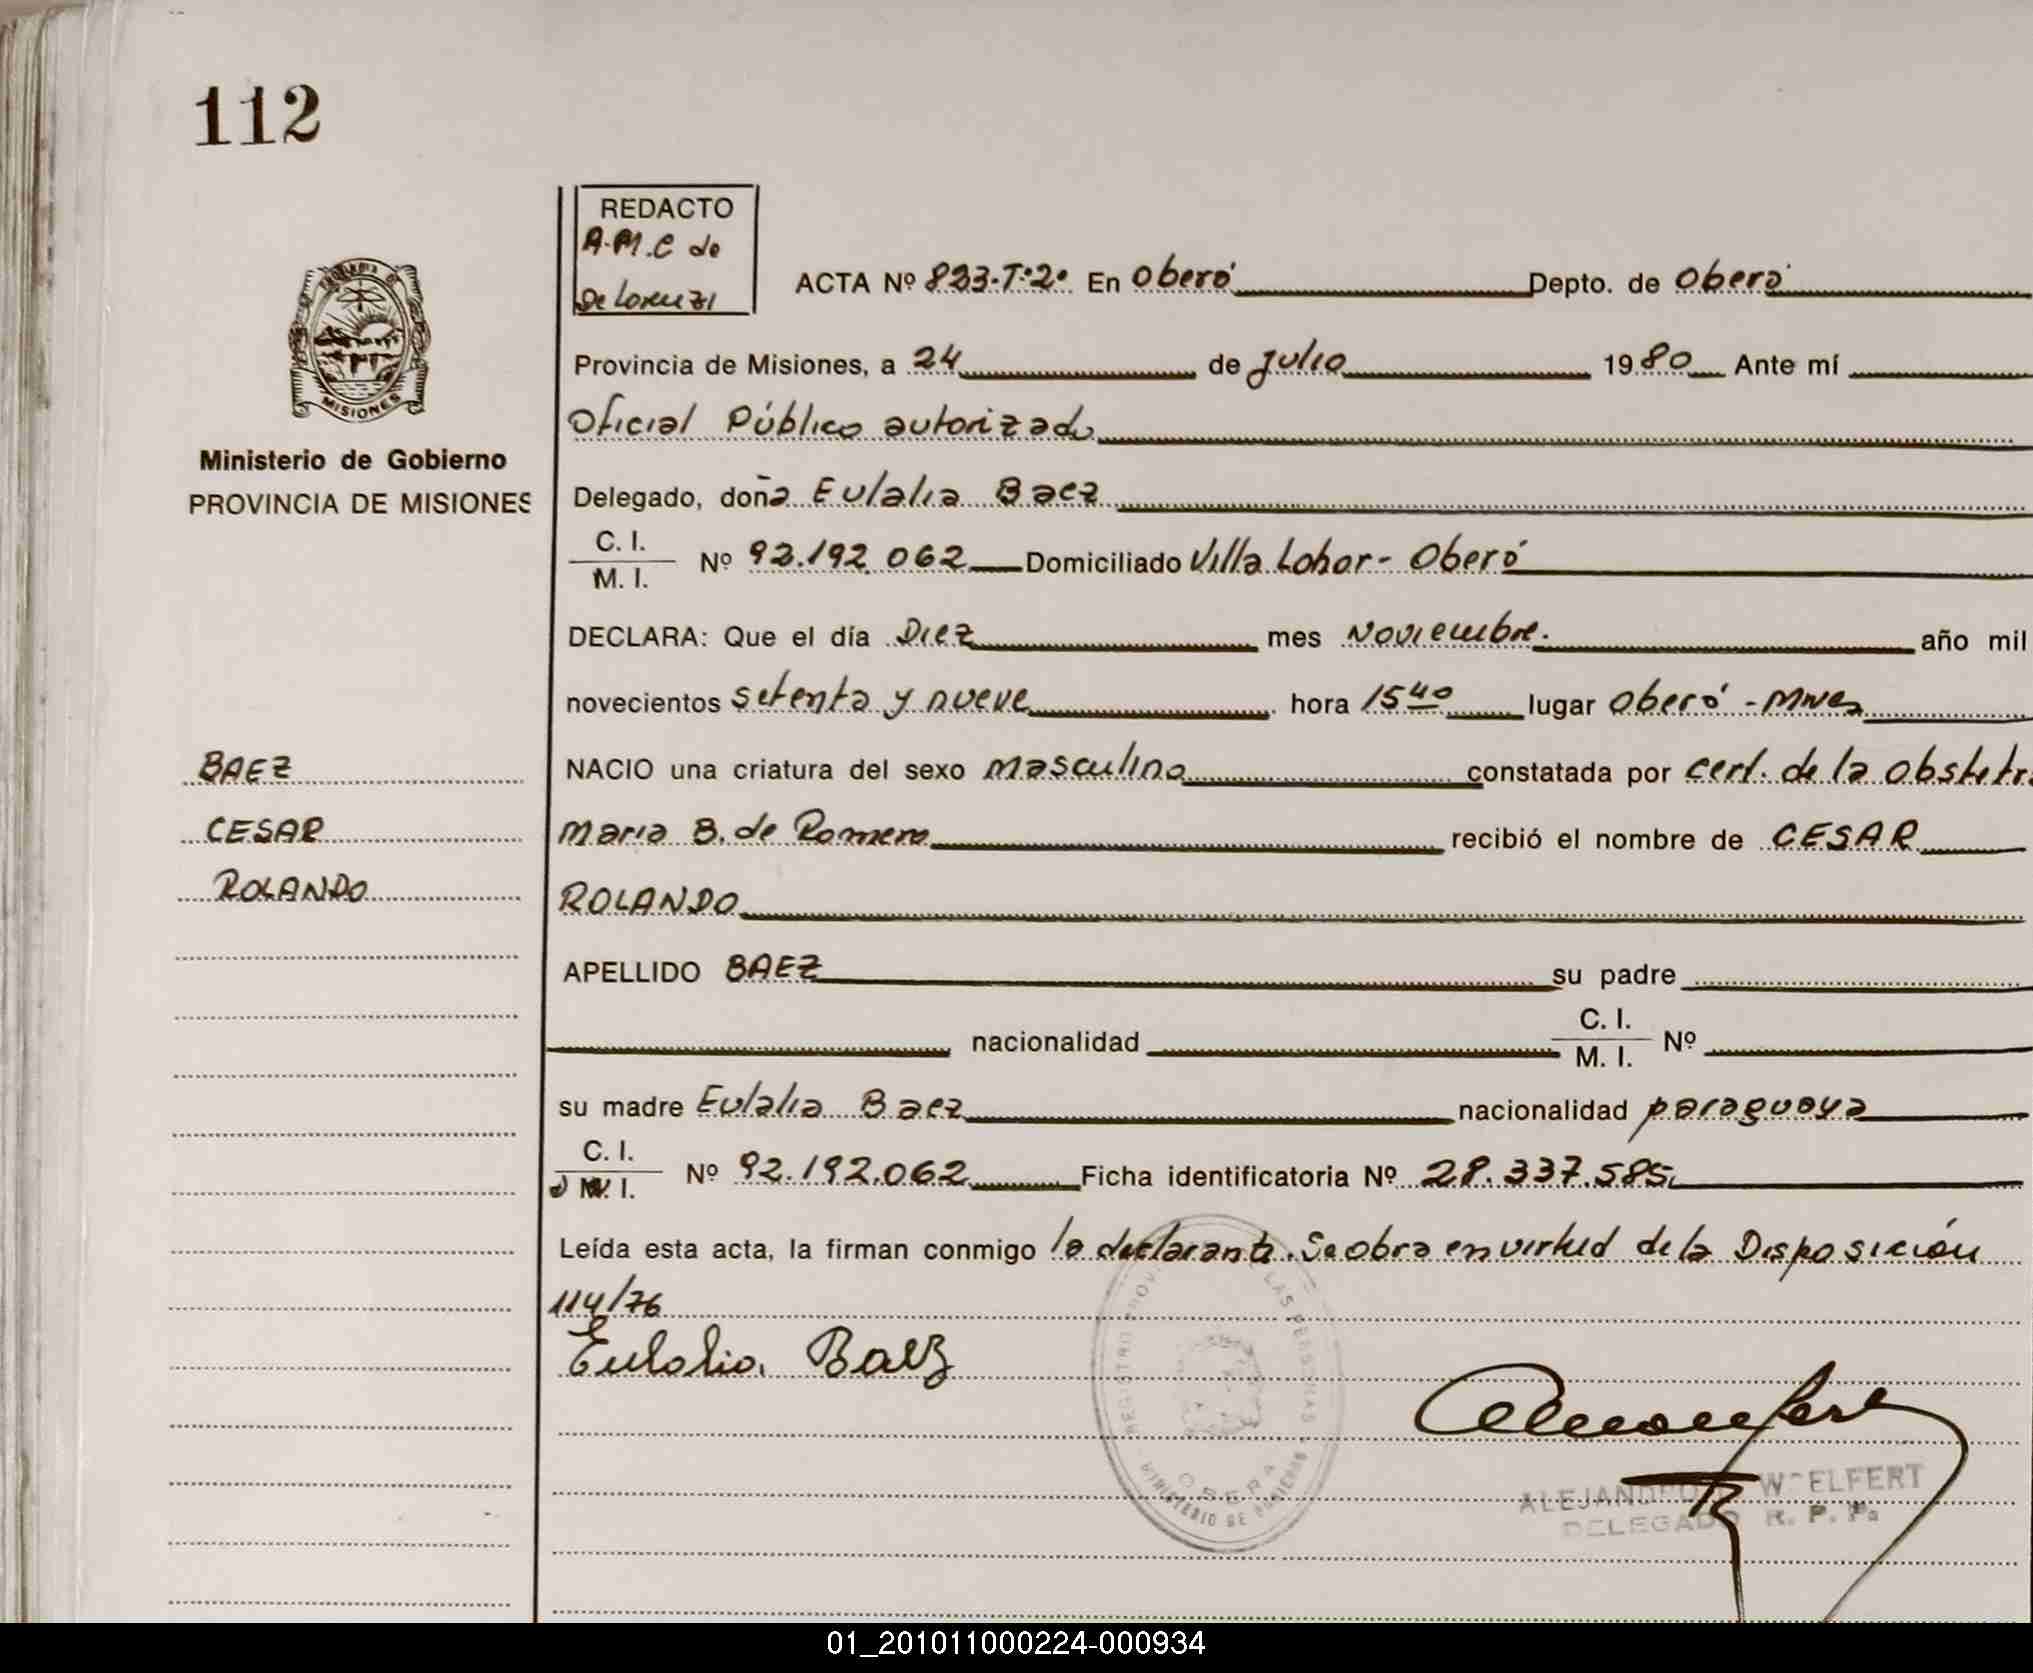 112
REDACTO
A.M.C de
De Lorenzi
ACTA Nº 823-Tº2º En Oberá Depto. de Oberá
Provincia de Misiones, a 24 de Julio 1980 Ante mí
Oficial Público autorizado
MISIONES
Ministerio de Gobierno
PROVINCIA DE MISIONES
Delegado, doña Eulalia Baez
C. I.
M. I. Nº 92.192.062 Domiciliado Villa Lohor - Oberá
DECLARA: Que el día Diez mes Noviembre. año mil
novecientos setenta y nueve hora 15 40 lugar Oberá - Mnes
BAEZ
CESAR
ROLANDO
NACIO una criatura del sexo masculino constatada por cert. de la obstetra
Maria B. de Romero recibió el nombre de CESAR
ROLANDO
APELLIDO BAEZ su padre
nacionalidad C. I.
M. I. Nº
su madre Eulalia Baez nacionalidad paraguaya
C. I.
M. I. Nº 92.192.062 Ficha identificatoria Nº 28.337.585
Leída esta acta, la firman conmigo la declarante. Se obra en virtud de la Disposición
114/76
Eulalia Baez
REGISTRO PROV DE LAS PERSONAS
MINISTERIO DE GOBIERNO
OBERA
ALEJANDRO WOELFERT
DELEGADO R. P. P.
01_201011000224-000934